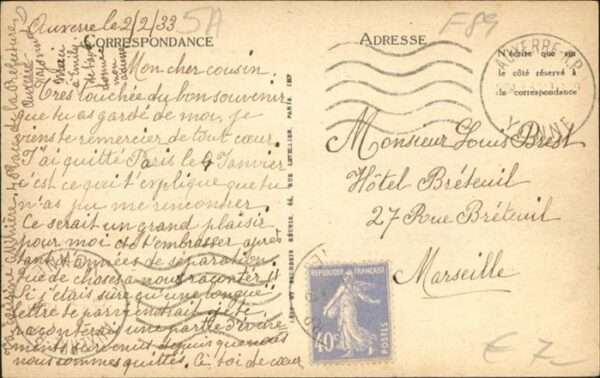 Auxerre le 2/2/33
5A
F 89
CORRESPONDANCE
ADRESSE
N'écrire que sur
le côté réservé à
la correspondance
AUXERRE R.P.
YONNE
Mon cher cousin
Très touchée du bon souvenir
que tu as gardé de moi, je
viens te remercier de tout cœur.
J'ai quitté Paris le 9 Janvier
c'est ce qui t'explique que tu
n'as pu me rencontrer.
Ce serait un grand plaisir
pour moi de t'embrasser après
tant d'années de séparation.
Que de choses à nous raconter !!
Si j'étais sûre qu'une longue
lettre te parviendrait je te
raconterais une partie d'évène
ments survenus depuis que nous
nous sommes quittés. À toi de cœur
4 Place de la Préfecture
Auxerre
Monsieur Louis Brest
Hôtel Bréteuil
27 Rue Bréteuil
Marseille
RÉPUBLIQUE FRANÇAISE
40c
POSTES
€ 7